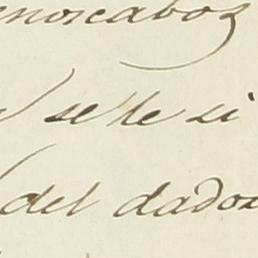 enoscaboz
se le si
del dador